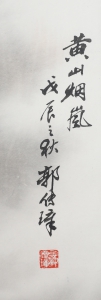 黄山烟岚
戊辰之秋郭传璋